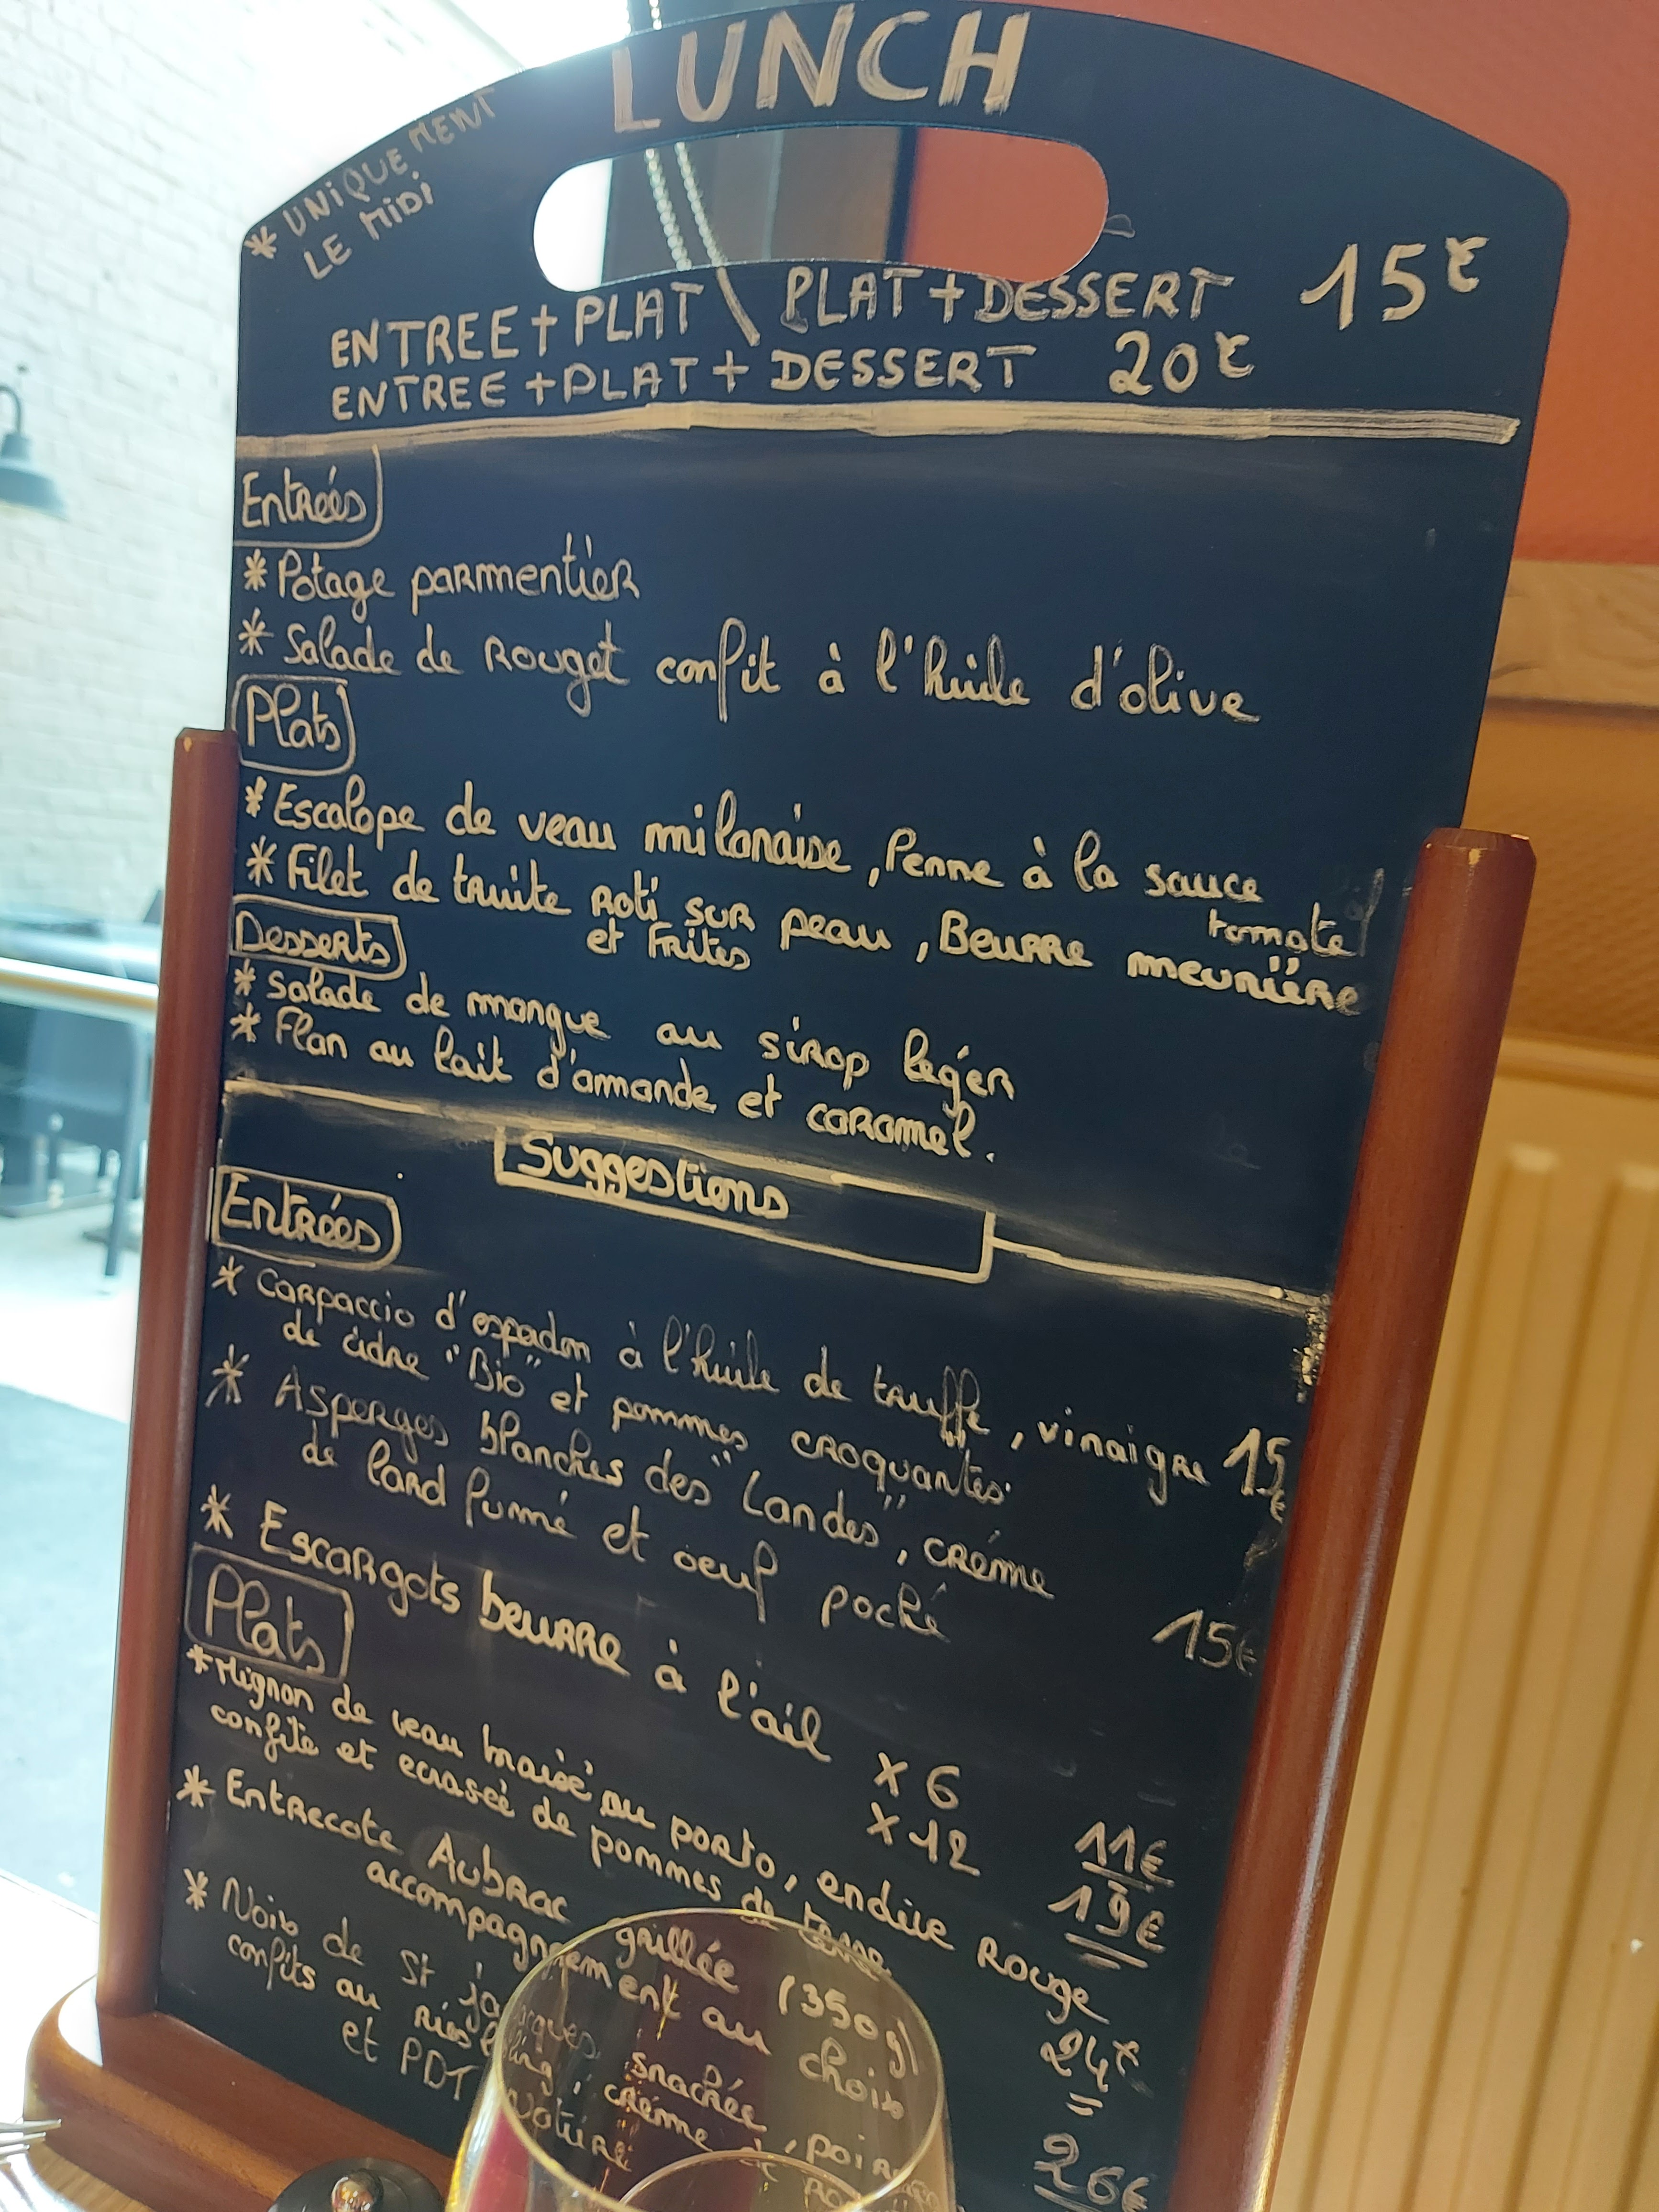 LUNCH
* UNIQUEMENT
LE MIDI
ENTREE + PLAT \ PLAT + DESSERT 15€
ENTREE + PLAT + DESSERT 20€
Entrées
* Potage parmentier
* Salade de Rouget confit à l'huile d'olive
Plats
* Escalope de veau milanaise, Penne à la sauce
tomate
* Filet de truite Roti sur peau, Beurre meunière
et Frites
Desserts
* Salade de mangue au sirop léger
* Flan au lait d'amande et caramel.
Suggestions
Entrées
* Carpaccio d'espadon à l'huile de truffe, vinaigre 15€
de cidre "Bio" et pommes croquantes.
* Asperges blanches des "Landes", créme
de lard fumé et oeuf poché 15€
* Escargots beurre à l'ail x 6 11€
x 12 19€
Plats
* Mignon de veau braisé au porto, endive Rouge
confite et ecraseé de pommes de terre 24€
* Entrecote Aubrac grillée (350g)
accompagnement au choix 26€
* Noix de St jacques snackée,
confits au riesling, créme de
et PDT